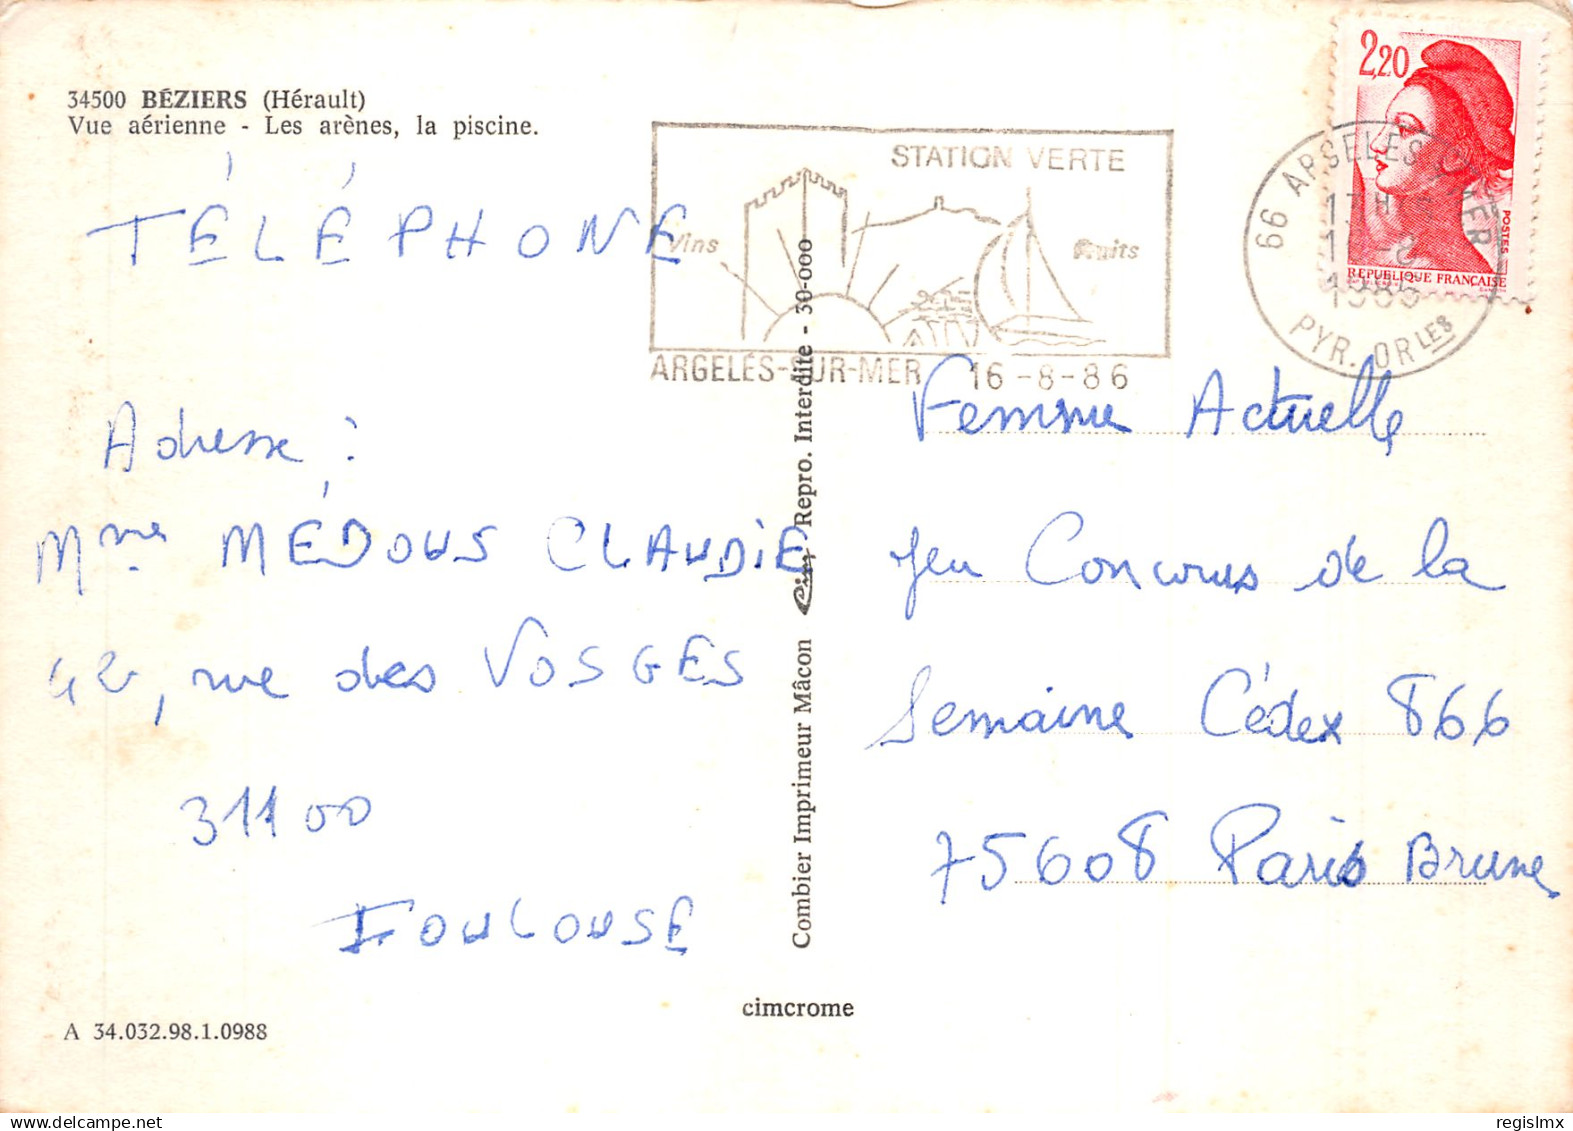 34500 BÉZIERS (Hérault)
Vue aérienne - Les arènes, la piscine.
TÉLÉPHONE
Adresse :
Mme MÉDOUS CLAUDIE
42, rue des VOSGES
31100
TOULOUSE
A 34.032.98.1.0988
Combier Imprimeur Mâcon Cim Repro. Interdite - 30-000
cimcrome
STATION VERTE
Vins
Fruits
ARGELÈS-SUR-MER 16-8-86
66 ARGELES S/MER
PYR. ORLES
2,20
POSTES
REPUBLIQUE FRANÇAISE
Femme Actuelle
Jeu Concours de la
Semaine Cédex 866
75608 Paris Brune
regislmx